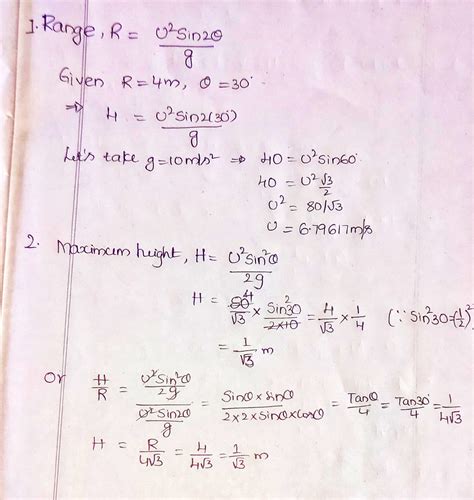 1. Range, R = U²Sin2θ/g
Given R = 4m, θ = 30°
⇒ 4 = U²Sin2(30°)/g
Let's take g = 10m/s² ⇒ 40 = U²Sin60°
40 = U² √3/2
U² = 80/√3
U = 6.79617m/s
2. Maximum height, H = U²Sin²θ/2g
H = 80⁴/√3 × Sin²30/2×10 = 4/√3 × 1/4 (∵ Sin²30 = (1/2)²)
= 1/√3 m
Or H/R = (U²Sin²θ/2g)/(U²Sin2θ/g) = Sinθ × sinθ/2×2×Sinθ×Cosθ = Tanθ/4 = Tan30°/4 = 1/4√3
H = R/4√3 = 4/4√3 = 1/√3 m